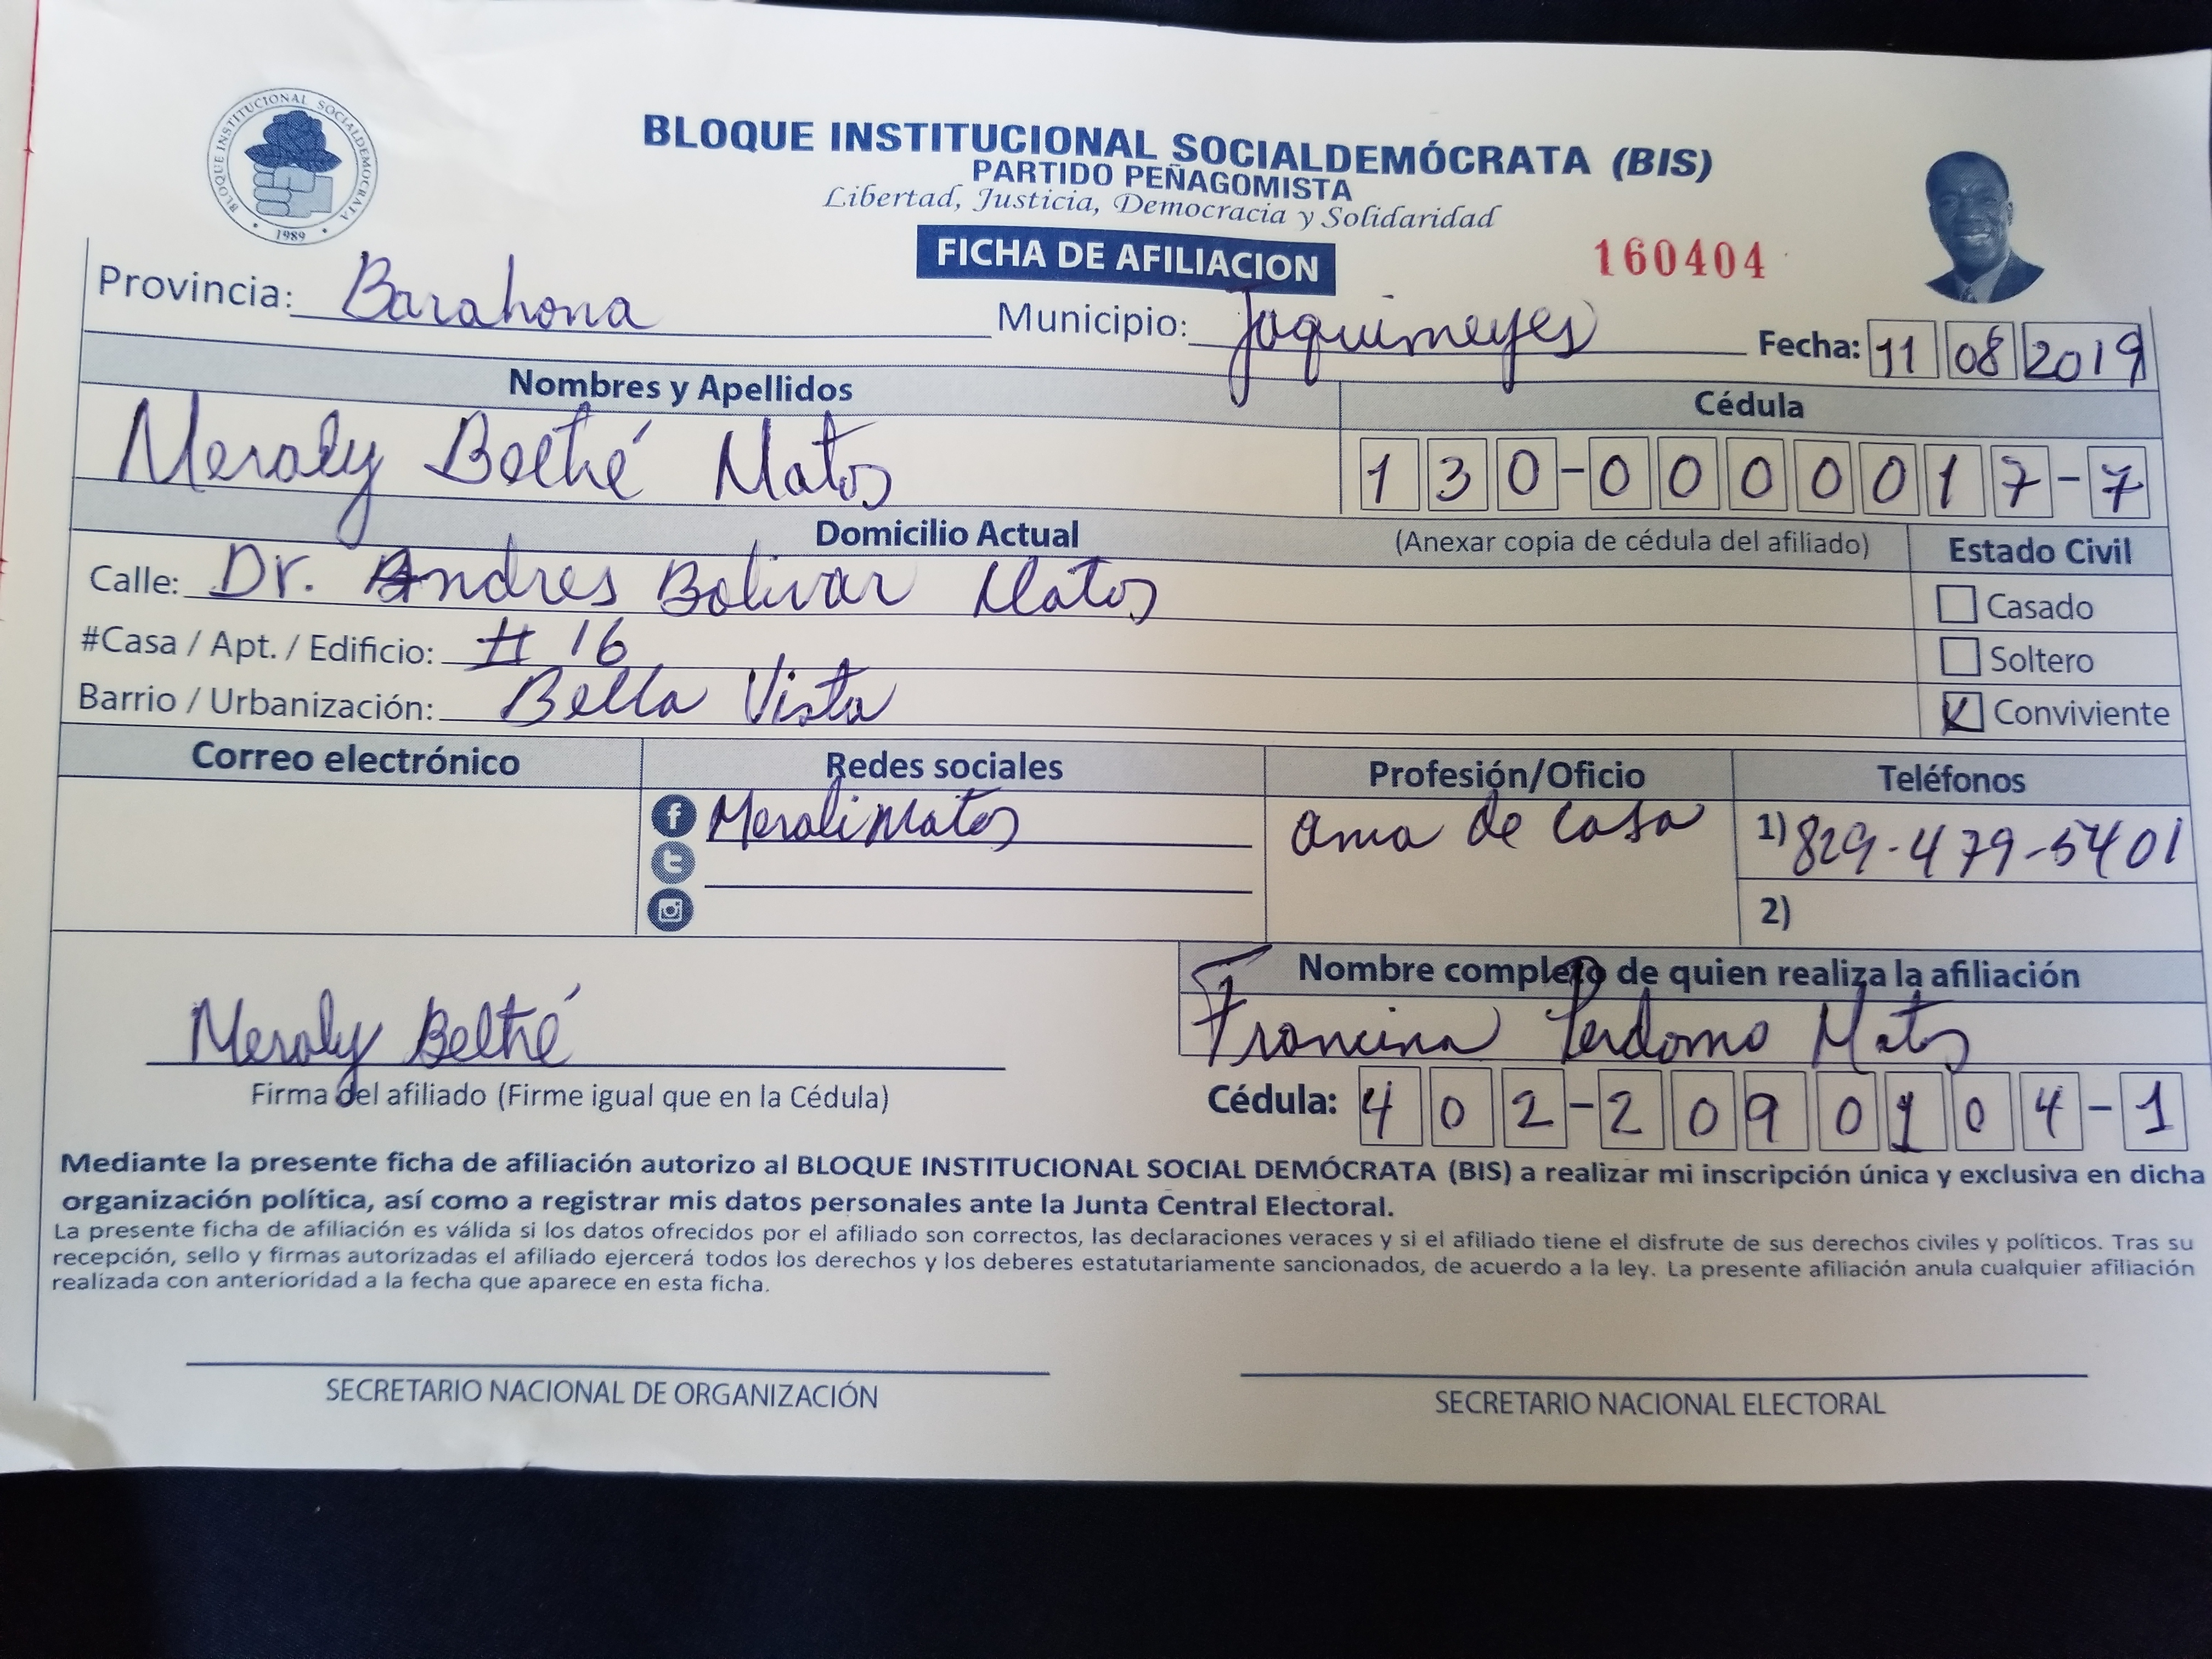 BLOQUE INSTITUCIONAL SOCIALDEMOCRATA
1989
BLOQUE INSTITUCIONAL SOCIALDEMÓCRATA (BIS)
PARTIDO PEÑAGOMISTA
Libertad, Justicia, Democracia y Solidaridad
FICHA DE AFILIACION
160404
Provincia: Barahona Municipio: Jaquimeyes Fecha: 11 08 2019
Nombres y Apellidos Cédula
Meraly Beltré Matos 130-0000017-7
Domicilio Actual (Anexar copia de cédula del afiliado) Estado Civil
Calle: Dr. Andres Bolivar Matos Casado
#Casa / Apt. / Edificio: # 16 Soltero
Barrio / Urbanización: Bella Vista Conviviente
Correo electrónico Redes sociales Profesión/Oficio Teléfonos
Merali Matos ama de casa 1) 829-479-5401
2)
Nombre completo de quien realiza la afiliación
Meraly Beltré Francina Perdomo Matos
Firma del afiliado (Firme igual que en la Cédula) Cédula: 402-2090104-1
Mediante la presente ficha de afiliación autorizo al BLOQUE INSTITUCIONAL SOCIAL DEMÓCRATA (BIS) a realizar mi inscripción única y exclusiva en dicha
organización política, así como a registrar mis datos personales ante la Junta Central Electoral.
La presente ficha de afiliación es válida si los datos ofrecidos por el afiliado son correctos, las declaraciones veraces y si el afiliado tiene el disfrute de sus derechos civiles y políticos. Tras su
recepción, sello y firmas autorizadas el afiliado ejercerá todos los derechos y los deberes estatutariamente sancionados, de acuerdo a la ley. La presente afiliación anula cualquier afiliación
realizada con anterioridad a la fecha que aparece en esta ficha.
SECRETARIO NACIONAL DE ORGANIZACIÓN SECRETARIO NACIONAL ELECTORAL